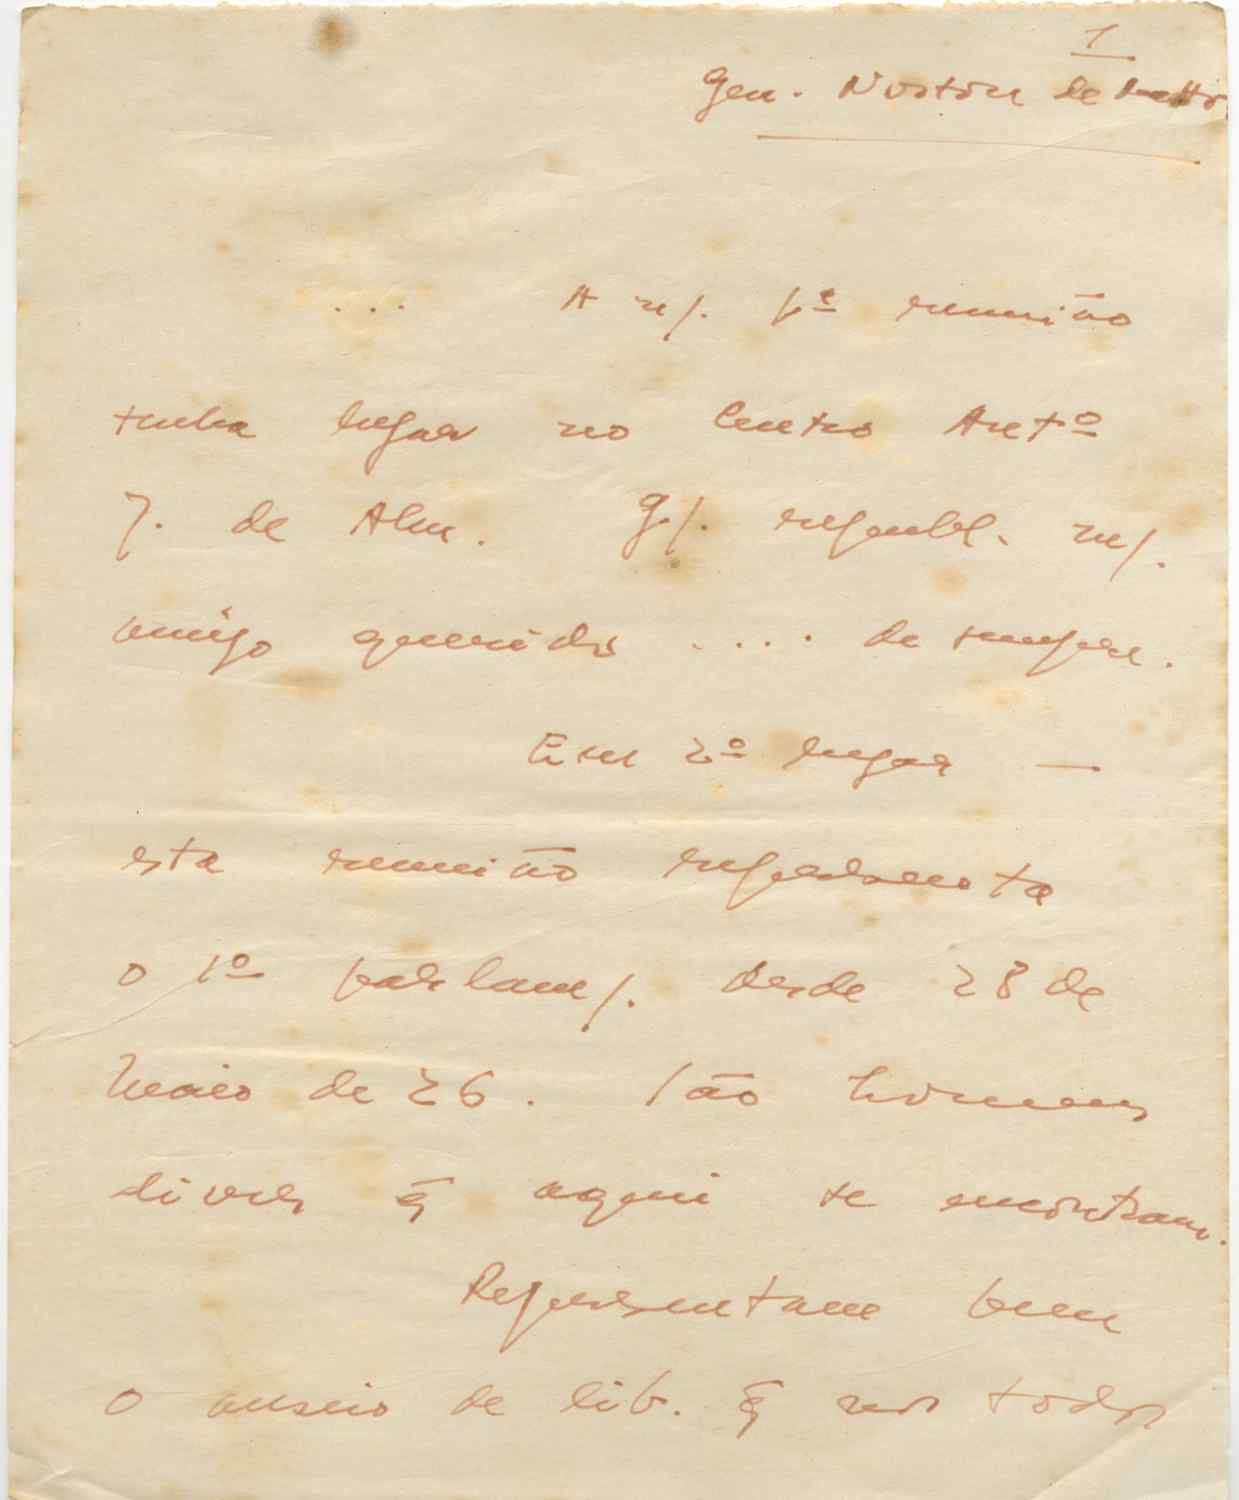 1
Gen. Norton de Mattos
... A m/. 1ª reunião
tenha lugar no Centro Antº
J. de Alm. G/. republ. m/.
amigo querido .... de sempre.
Em 2º lugar —
esta reunião representa
o 1º parlam/. desde 28 de
Maio de 26. São homens
livres q̃ aqui se encontram.
Representam bem
o anseio de lib. q̃ nos todos